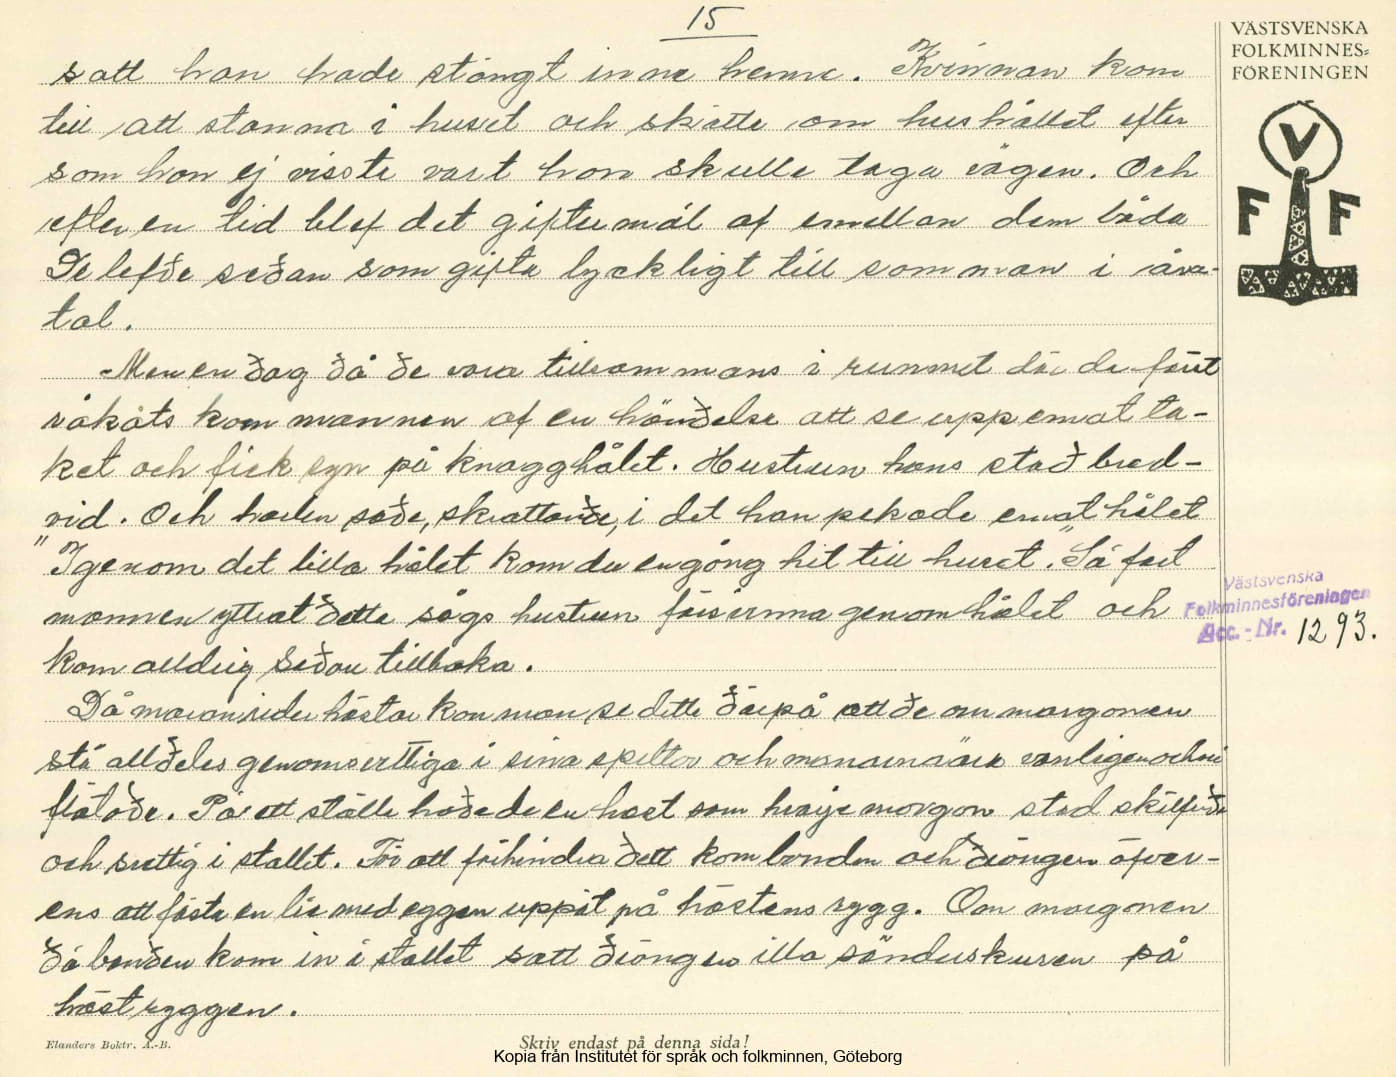 15
satt han hade stängt inne henne. Kvinnan kom
till att stanna i huset och skötte om hushållet efter
som hon ej visste vart hon skulle taga vägen. Och
efter en tid blef det giftermål af emellan dem båda
De lefde sedan som gifta lyckligt till somman i åra-
tal.
-Men en dag då de vara tillsammans i rummet där de först
råkats kom mannen af en händelse att se upp emot ta-
ket och fick syn på knagghålet. Hustrun hans stod bred-
vid. Och karlen sade, skrattande, i det han pekade emot hålet
"Igenom det lilla hålet kom du engång hit till huset." Så fort
mannen yttrat detta sögs hustrun försvinna genom hålet och
kom alldrig sedan tillbaka.
Då maran rider hästar kan man se dette därpå att de om morgonen
stå alldeles genomsvettiga i sina spiltor och manarna äro vanligen ochså
flätade. På ett ställe hade de en häst som hvarje morgon stod skälfvande
och svettig i stallet. För att förhindra dett kom bonden och drängen öfver-
ens att fästa en lie med eggen uppåt på hästens rygg. Om morgonen
då bonden kom in i stallet satt drängen illa sönderskuren på
hästryggen.
VÄSTSVENSKA
FOLKMINNES=
FÖRENINGEN
V
F F
Västsvenska
Folkminnesföreningen
Acc.-Nr. 1293.
Elanders Boktr. A.-B.
Skriv endast på denna sida!
Kopia från Institutet för språk och folkminnen, Göteborg